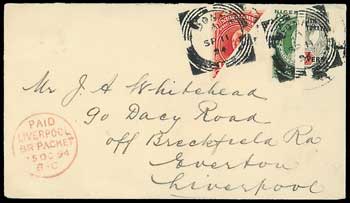 NIGER
SP 11
PAID
LIVERPOOL
BR. PACKET
15 OC 94
Mr J A Whitehead
90 Dacy Road
off Breckfield Rd
Everton
Liverpool